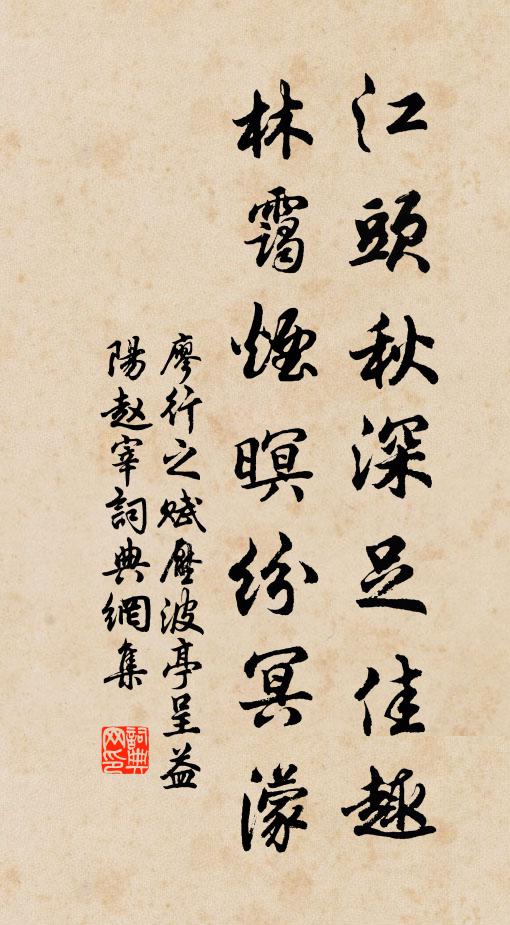 江頭秋深足佳趣
林靄煙暝紛冥濛
廖行之賦壓波亭呈益
陽赵宰詞典網集
詞典网印